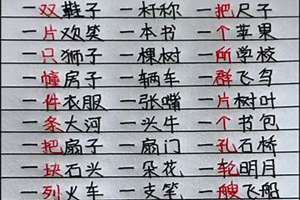 一双鞋子 一杆称 一把尺子
一片欢笑 一本书 一个苹果
一只狮子 一棵树 一所学校
一幢房子 一辆车 一群飞鸟
一件衣服 一张嘴 一片树叶
一条大河 一头牛 一个书包
一把扇子 一扇门 一孔石桥
一块石头 一朵花 一轮明月
一列火车 一支笔 一艘飞船